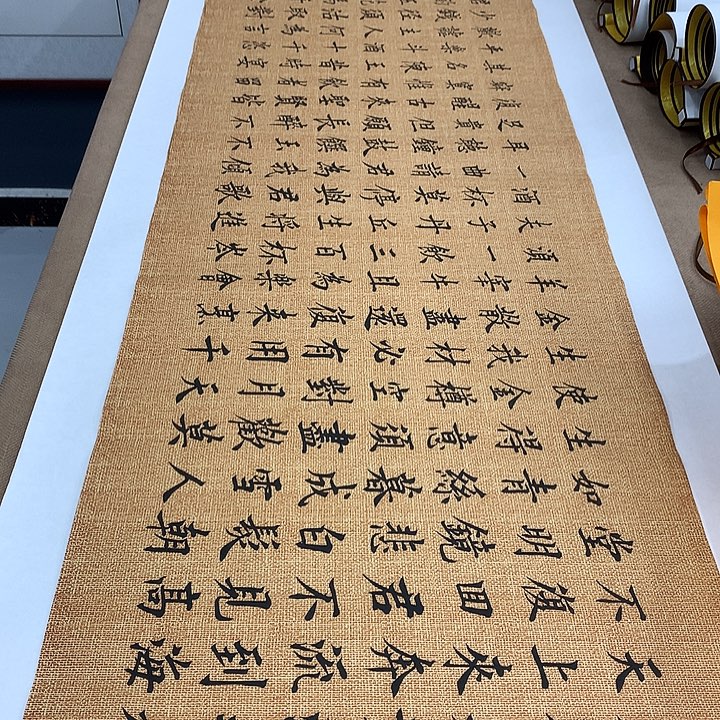 天上來奔流到海
不復回君不見高
堂明鏡悲白髮朝
如青絲暮成雪人
生得意須盡歡莫
使金樽空對月天
生我材必有用千
金散盡還復來烹
羊宰牛且為樂會
須一飲三百杯岑
夫子丹丘生將進
酒杯莫停與君歌
一曲請君為我傾
耳聽鐘鼓饌玉不
足貴但願長醉不
復醒古來聖賢皆
寂寞惟有飲者留
其名陳王昔時宴
平樂斗酒十千恣
歡謔主人何為言
少錢徑須沽取對